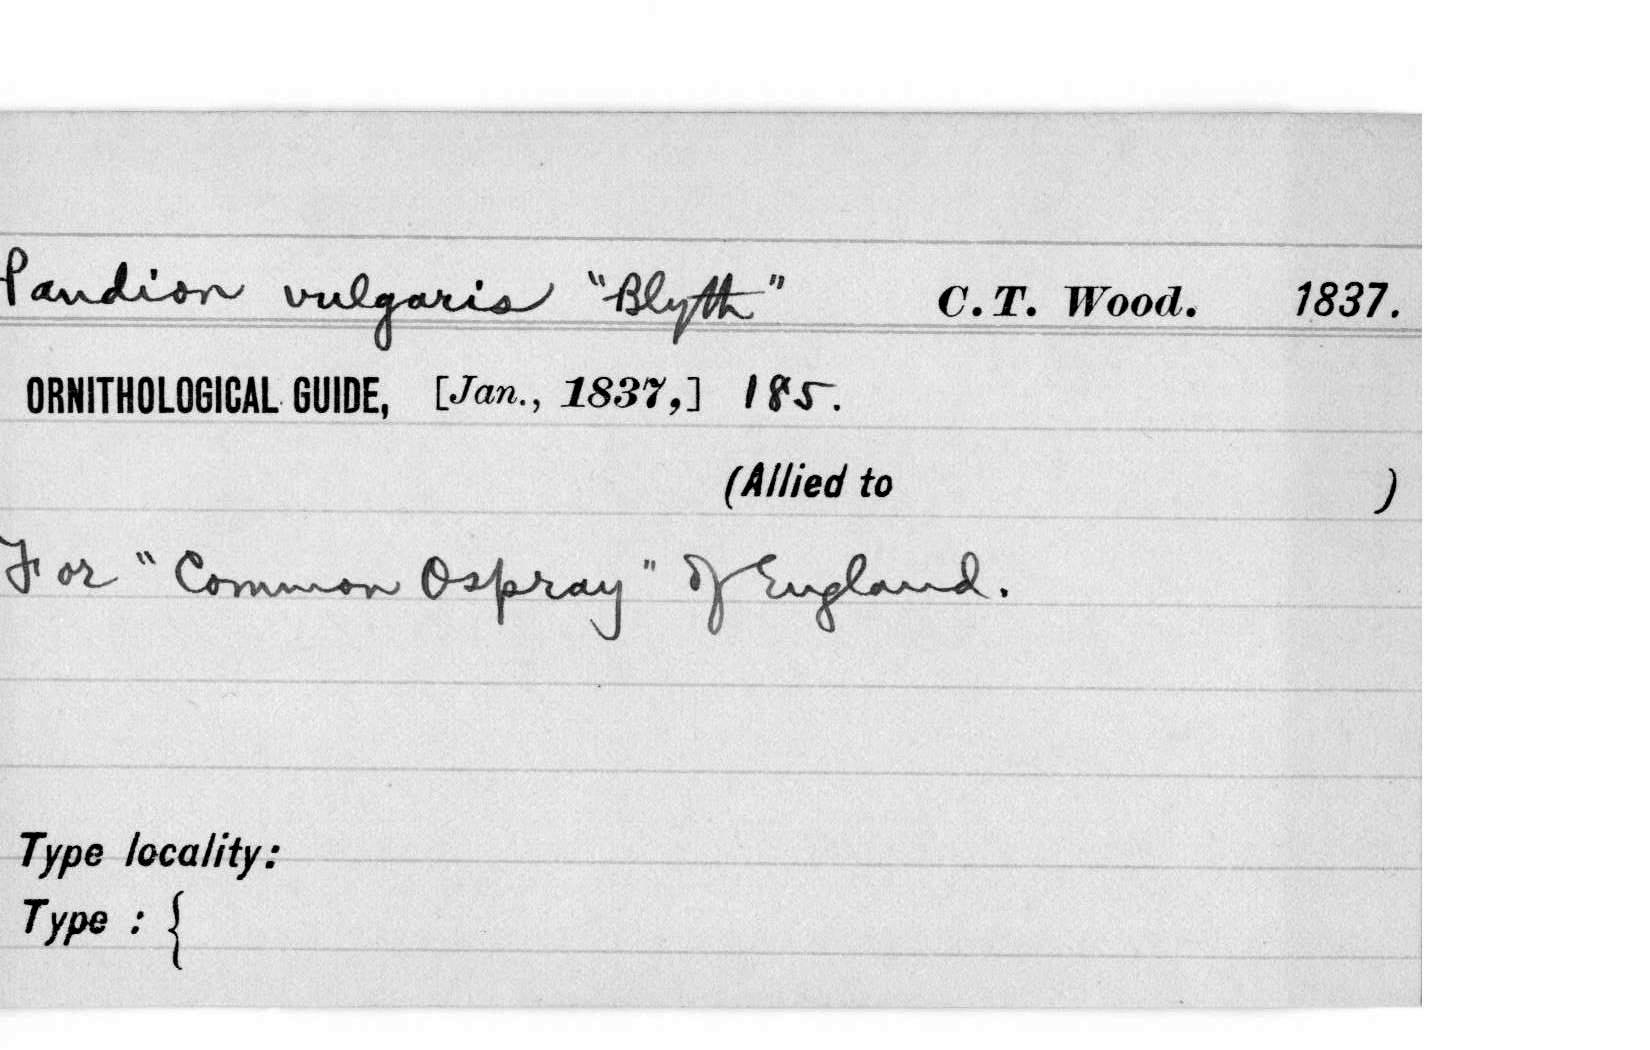 Pandion vulgaris "Blyth" C. T. Wood. 1837.
ORNITHOLOGICAL GUIDE, [Jan., 1837,] 185.
(Allied to )
For "Common Ospray" of England.
Type locality:
Type : {